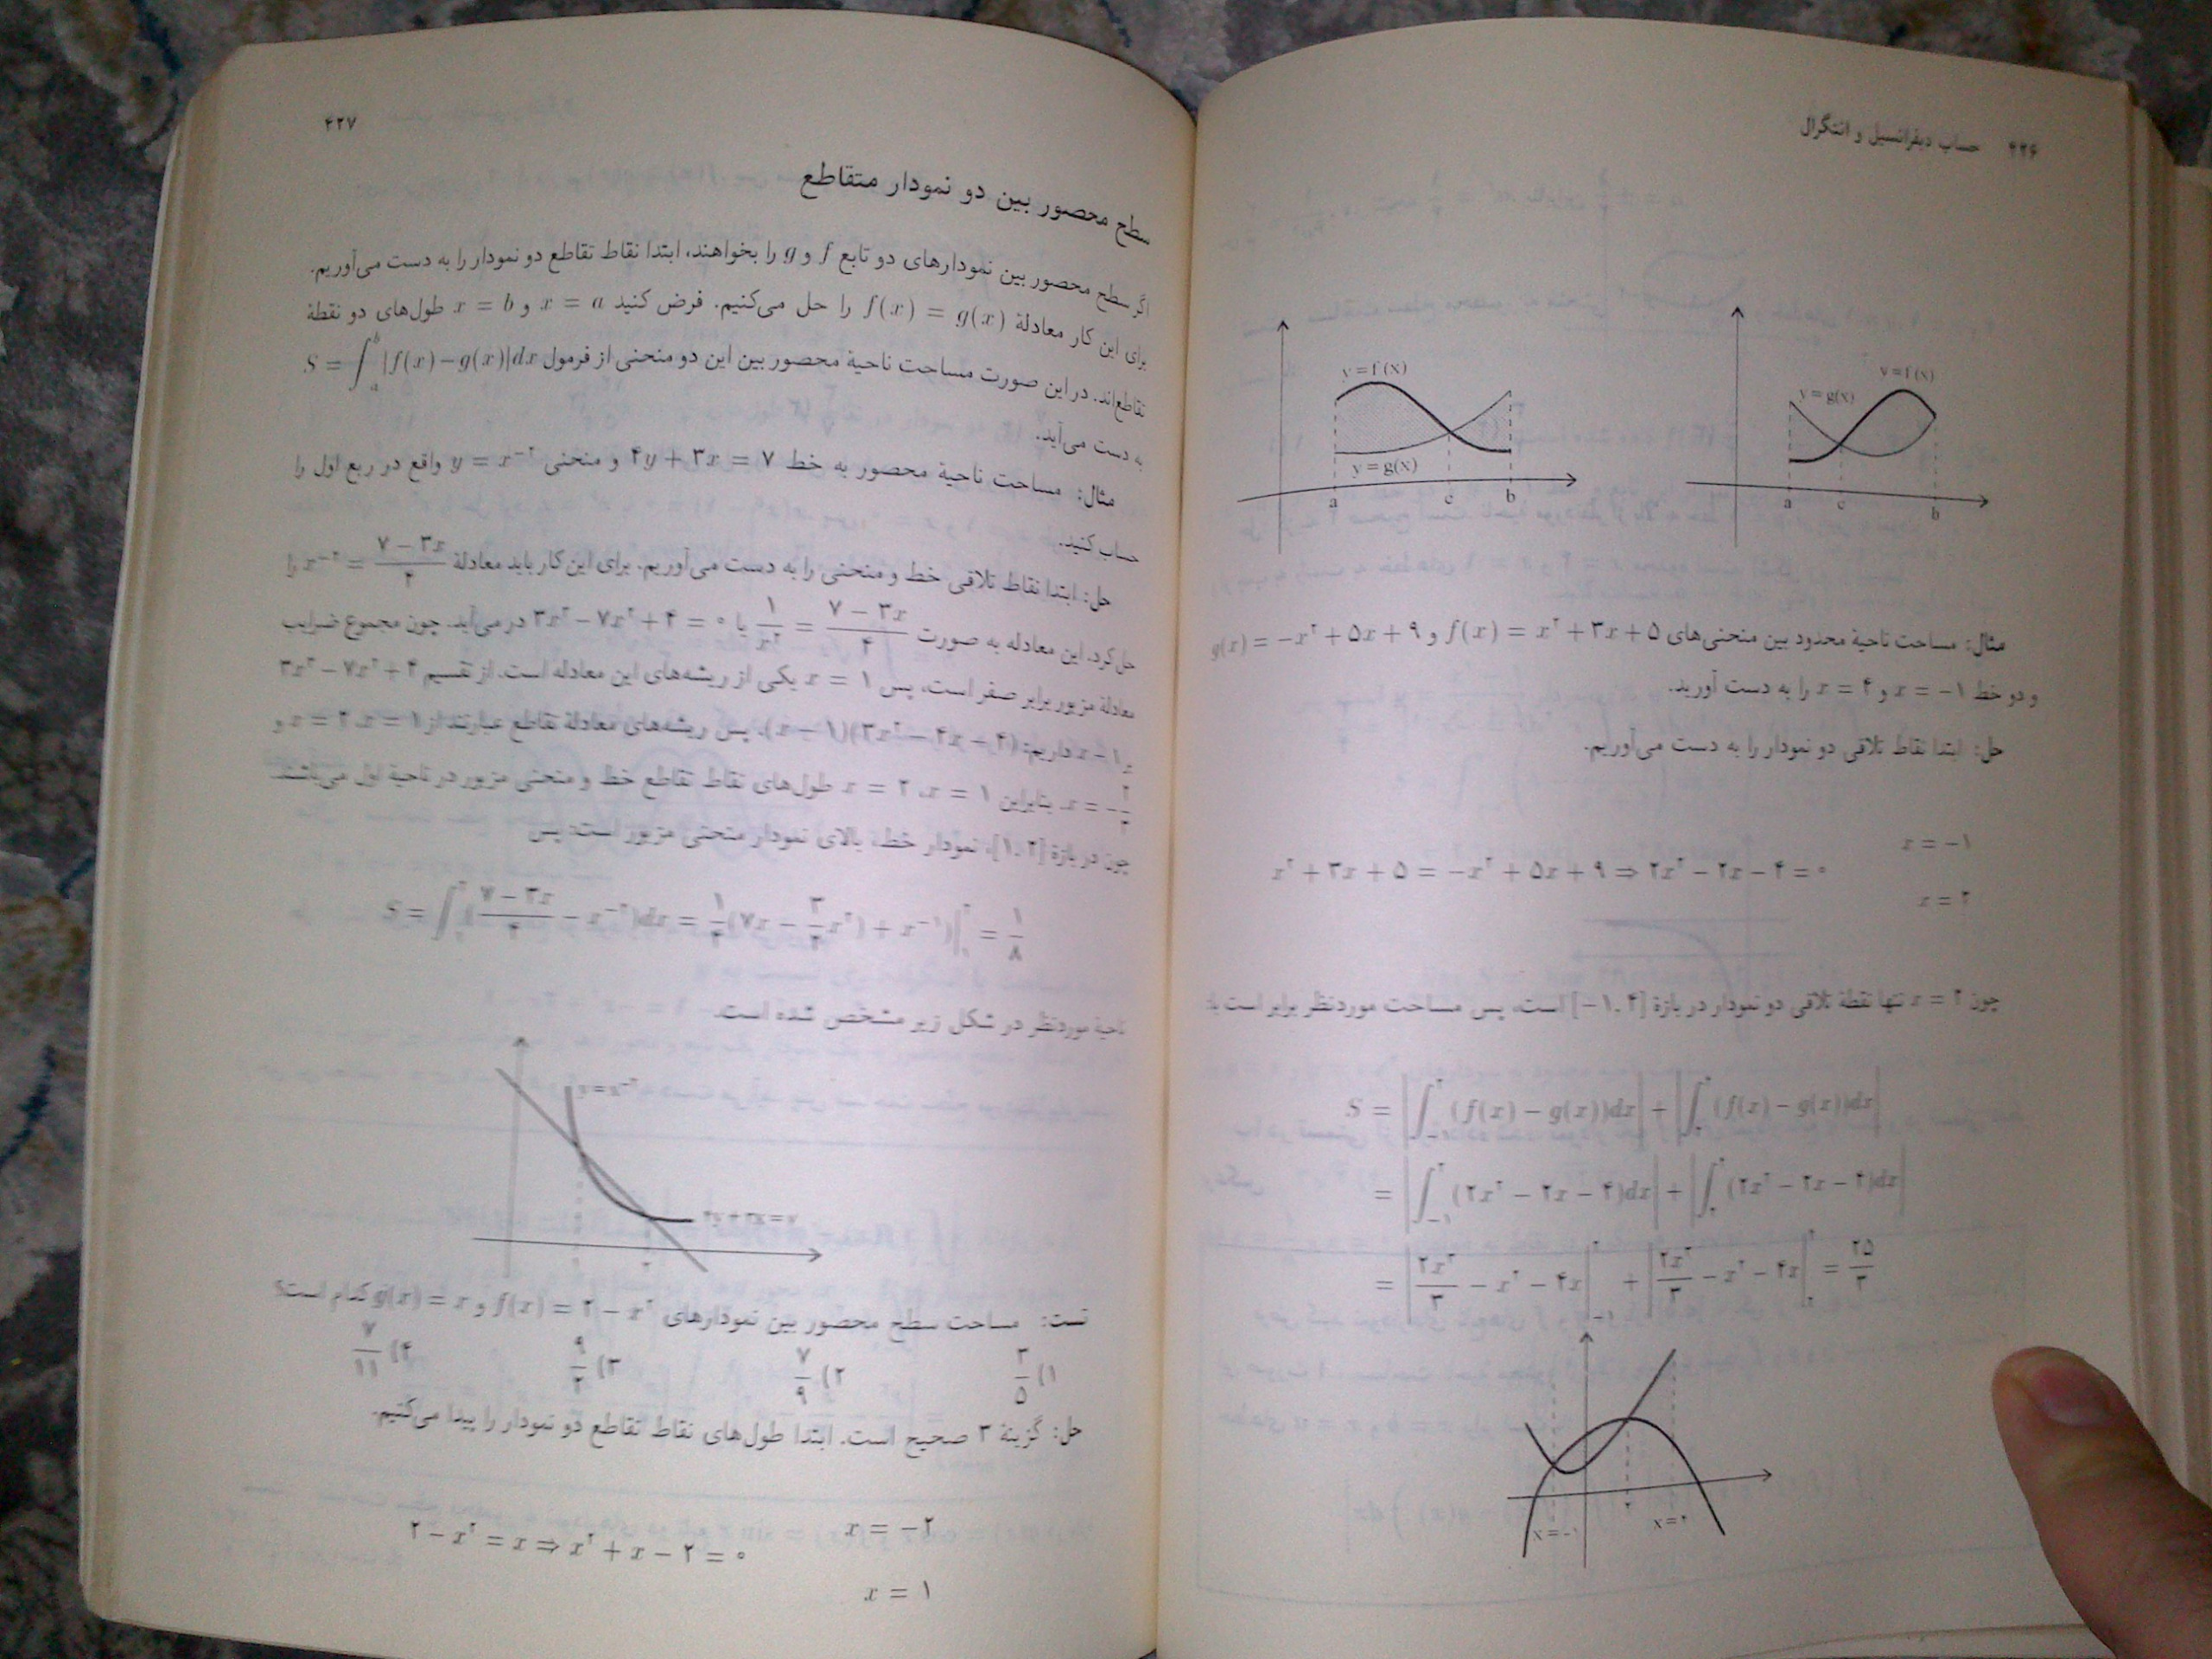 ۴۳۶ حساب دیفرانسیل و انتگرال
y = f(x)
y = g(x)
a c b
y = f(x)
y = g(x)
a c b
مثال: مساحت ناحیهٔ محدود بین منحنی‌های f(x) = x² + ۳x + ۵ و g(x) = −x² + ۵x + ۹
و دو خط x = −۱ و x = ۴ را به دست آورید.
حل: ابتدا نقاط تلاقی دو نمودار را به دست می‌آوریم.
x = −۱
x² + ۳x + ۵ = −x² + ۵x + ۹ ⇒ ۲x² − ۲x − ۴ = ۰
x = ۲
چون x = ۲ تنها نقطهٔ تلاقی دو نمودار در بازهٔ [−۱, ۴] است، پس مساحت موردنظر برابر است با:
S = |∫ (f(x) − g(x))dx| + |∫ (f(x) − g(x))dx|
= |∫ (۲x² − ۲x − ۴)dx| + |∫ (۲x² − ۲x − ۴)dx|
x = −۱
۲
۴۳۷
سطح محصور بین دو نمودار متقاطع
اگر سطح محصور بین نمودارهای دو تابع f و g را بخواهند، ابتدا نقاط تقاطع دو نمودار را به دست می‌آوریم.
برای این کار معادلهٔ f(x) = g(x) را حل می‌کنیم. فرض کنید x = a و x = b طول‌های دو نقطهٔ
تقاطع‌اند. در این صورت مساحت ناحیهٔ محصور بین این دو منحنی از فرمول S = ∫ₐᵇ |f(x) − g(x)|dx
به دست می‌آید.
مثال: مساحت ناحیهٔ محصور به خط ۴y + ۳x = ۷ و منحنی y = x⁻² واقع در ربع اول را
حساب کنید.
حل: ابتدا نقاط تلاقی خط و منحنی را به دست می‌آوریم. برای این کار باید معادلهٔ (۷ − ۳x)/۴ = x⁻² را
حل کرد. این معادله به صورت (۷ − ۳x)/۴ = ۱/x² یا ۳x³ − ۷x² + ۴ = ۰ در می‌آید. چون مجموع ضرایب
معادلهٔ مزبور برابر صفر است، پس x = ۱ یکی از ریشه‌های این معادله است. از تقسیم ۳x³ − ۷x² + ۴
بر x − ۱ داریم: (x − ۱)(۳x² − ۴x − ۴). پس ریشه‌های معادلهٔ تقاطع عبارتند از x = ۱، x = ۲ و
x = −۲/۳. بنابراین x = ۱، x = ۲ طول‌های نقاط تقاطع خط و منحنی مزبور در ناحیهٔ اول می‌باشند.
چون در بازهٔ [۱, ۲]، نمودار خط، بالای نمودار منحنی مزبور است: پس
S = ∫ ((۷ − ۳x)/۴ − x⁻²)dx = ۱/۴(۷x − ۳/۲x²) + x⁻¹ = ۱/۸
ناحیهٔ موردنظر در شکل زیر مشخص شده است.
y = x⁻²
۴y + ۳x = ۷
تست: مساحت سطح محصور بین نمودارهای f(x) = ۲ − x² و g(x) = x کدام است؟
۱) ۳/۵ ۲) ۷/۹ ۳) ۹/۲ ۴) ۷/۱۱
حل: گزینهٔ ۳ صحیح است. ابتدا طول‌های نقاط تقاطع دو نمودار را پیدا می‌کنیم.
x = −۲
۲ − x² = x ⇒ x² + x − ۲ = ۰
x = ۱